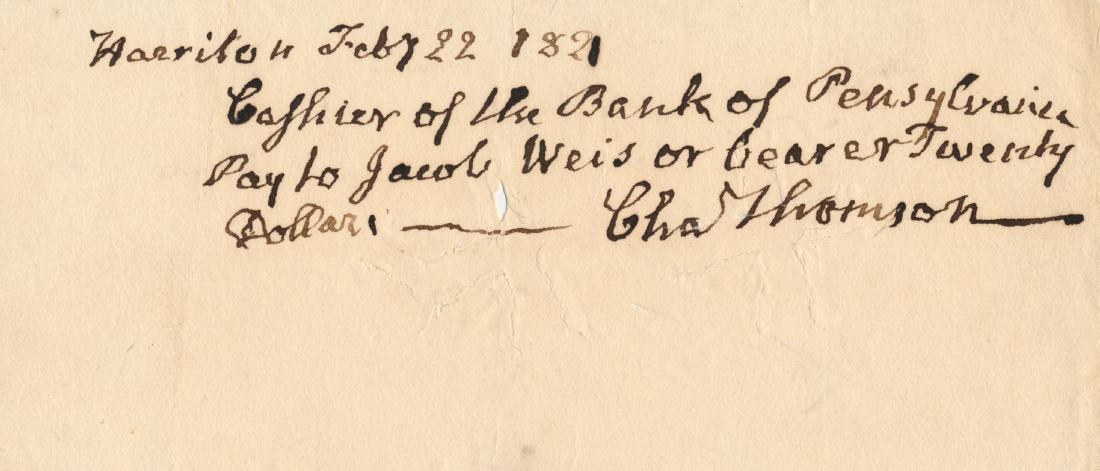 Harriton Feby 22 1821
Cashier of the Bank of Pensylvania
Pay to Jacob Weis or bearer Twenty
Dollars
Chas Thomson